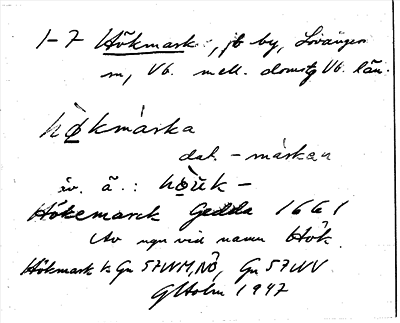 1-7 Hökmark, jb by, Lövångers
sn, Vb. mell. domsg Vb. län.
hø̀kmàrka
dat. -márkan
äv. ä.: hø̀uk-
Hökemarck Gedda 1661
Av ngn vid namn Hök.
Hökmark k Gn 57 NM, NÖ, Gn 57 NV
G Holm 1947